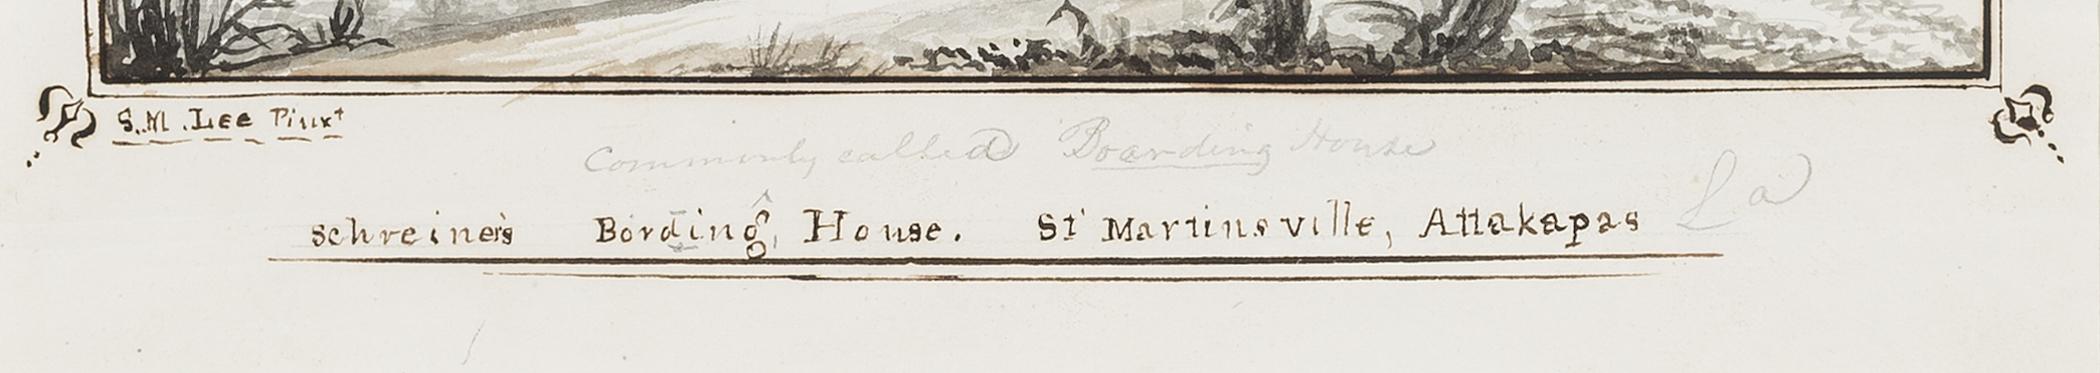 S.M. Lee Pinxt
Commonly called Boarding House
Schreiner's Bording, House. St Martinsville, Attakapas La